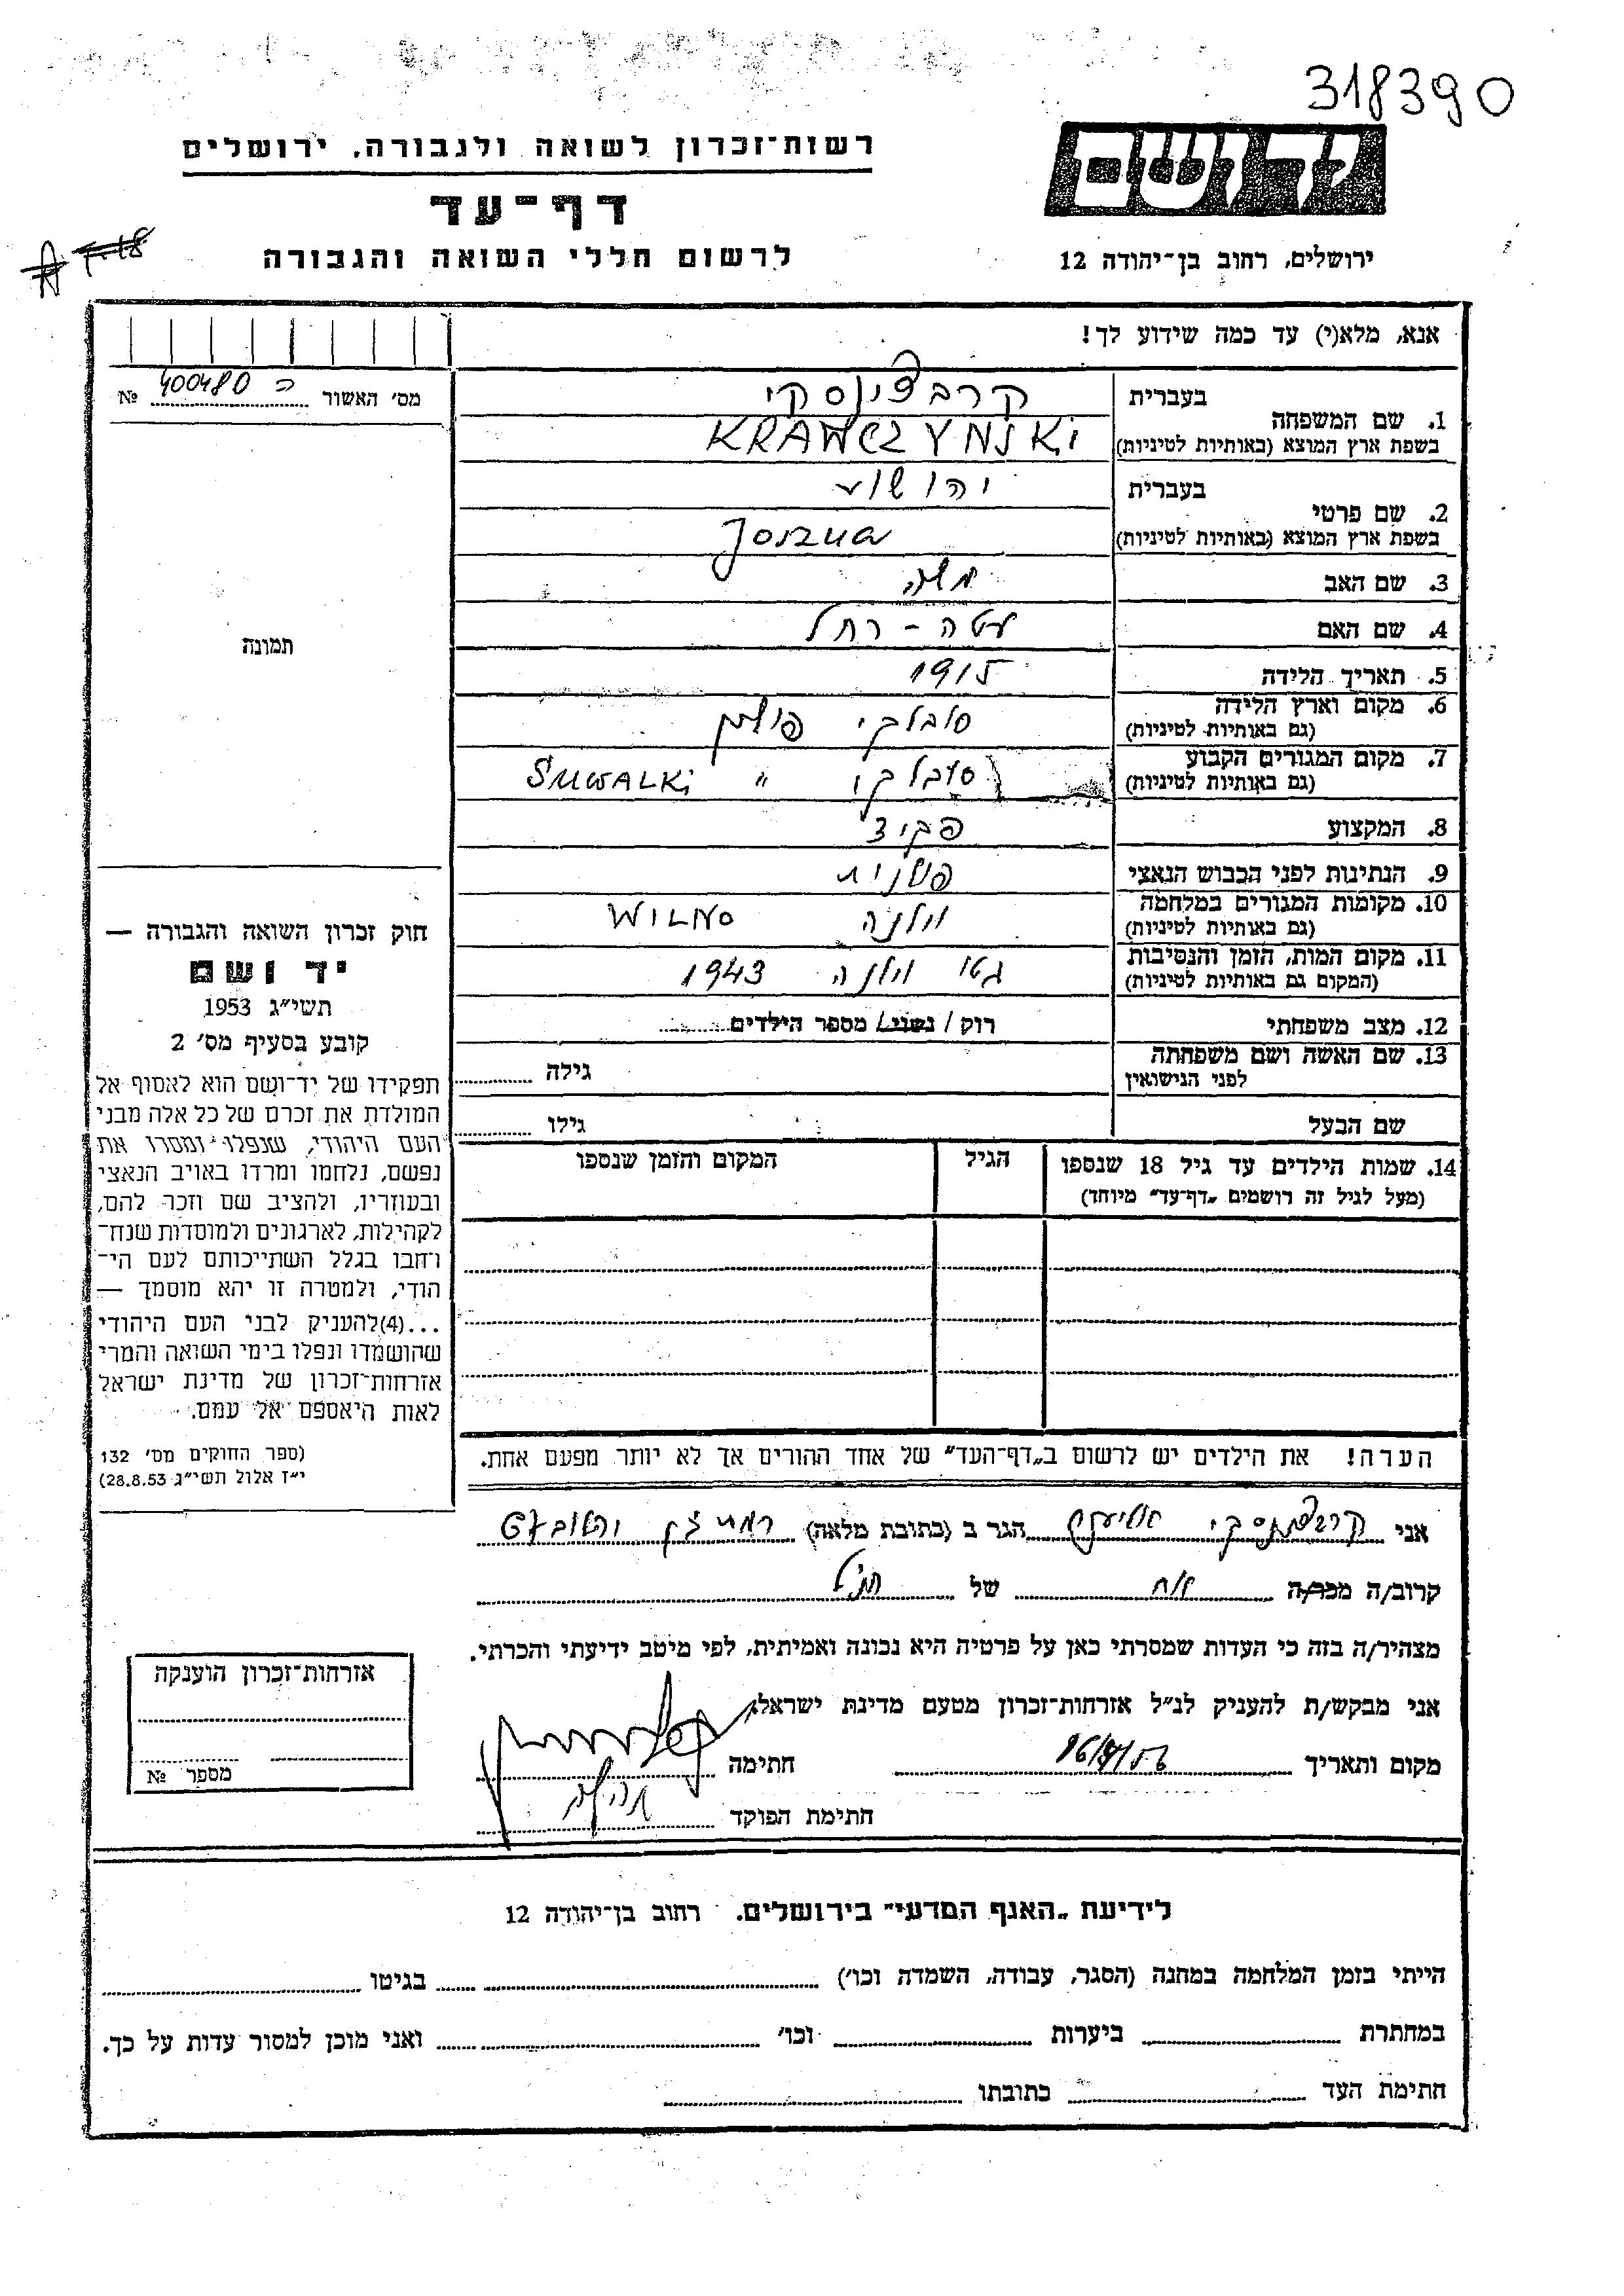 318390
רשות-זכרון לשואה ולגבורה, ירושלים
יד ושם
דף-עד
לרשום חללי השואה והגבורה
ירושלים, רחוב בן-יהודה 12
אנא, מלא(י) עד כמה שידוע לך!
מס' האשור ה 400480 №
תמונה
1. שם המשפחה
בעברית קרבצ'ינסקי
בשפת ארץ המוצא (באותיות לטיניות) KRAWCZYNSKi
2. שם פרטי
בעברית יהושע
בשפת ארץ המוצא (באותיות לטיניות) Joszua
3. שם האב משה
4. שם האם יטה - רחל
5. תאריך הלידה 1915
6. מקום וארץ הלידה סובלקי פולין
(גם באותיות לטיניות)
7. מקום המגורים הקבוע סובלקי " SUWALKi
(גם באותיות לטיניות)
8. המקצוע פקיד
9. הנתינות לפני הכבוש הנאצי פולנית
10. מקומות המגורים במלחמה וילנה WILNO
(גם באותיות לטיניות)
11. מקום המות, הזמן והנסיבות גטו וילנה 1943
(המקום גם באותיות לטיניות)
12. מצב משפחתי רוק / נשוי / מספר הילדים
13. שם האשה ושם משפחתה גילה
לפני הנישואין
שם הבעל גילו
14. שמות הילדים עד גיל 18 שנספו הגיל המקום והזמן שנספו
(מעל לגיל זה רושמים „דף-עד" מיוחד)
הערה! את הילדים יש לרשום ב„דף-העד" של אחד ההורים אך לא יותר מפעם אחת.
חוק זכרון השואה והגבורה —
יד ושם
תשי"ג 1953
קובע בסעיף מס' 2
תפקידו של יד-ושם הוא לאסוף אל
המולדת את זכרם של כל אלה מבני
העם היהודי, שנפלו ומסרו את
נפשם, נלחמו ומרדו באויב הנאצי
ובעוזריו, ולהציב שם וזכר להם,
לקהילות, לארגונים ולמוסדות שנח-
רחבו בגלל השתייכותם לעם הי-
הודי, ולמטרה זו יהא מוסמך —
...(4)להעניק לבני העם היהודי
שהושמדו ונפלו בימי השואה והמרי
אזרחות-זכרון של מדינת ישראל
לאות היאספם אל עמם.
(ספר החוקים מס' 132
י"ז אלול תשי"ג 28.8.53)
אני קרבצ'ינסקי אליעזר הגר ב (כתובת מלאה) רמת גן
קרוב/ה מכר/ה אח של הנ"ל
מצהיר/ה בזה כי העדות שמסרתי כאן על פרטיה היא נכונה ואמיתית, לפי מיטב ידיעתי והכרתי.
אני מבקש/ת להעניק לנ"ל אזרחות-זכרון מטעם מדינת ישראל.
מקום ותאריך חתימה
חתימת הפוקד
אזרחות-זכרון הוענקה
מספר №
לידיעת „האגף המדעי" בירושלים. רחוב בן-יהודה 12
הייתי בזמן המלחמה במחנה (הסגר, עבודה, השמדה וכו') בגיטו
במחתרת ביערות וכו' ואני מוכן למסור עדות על כך.
חתימת העד כתובתו